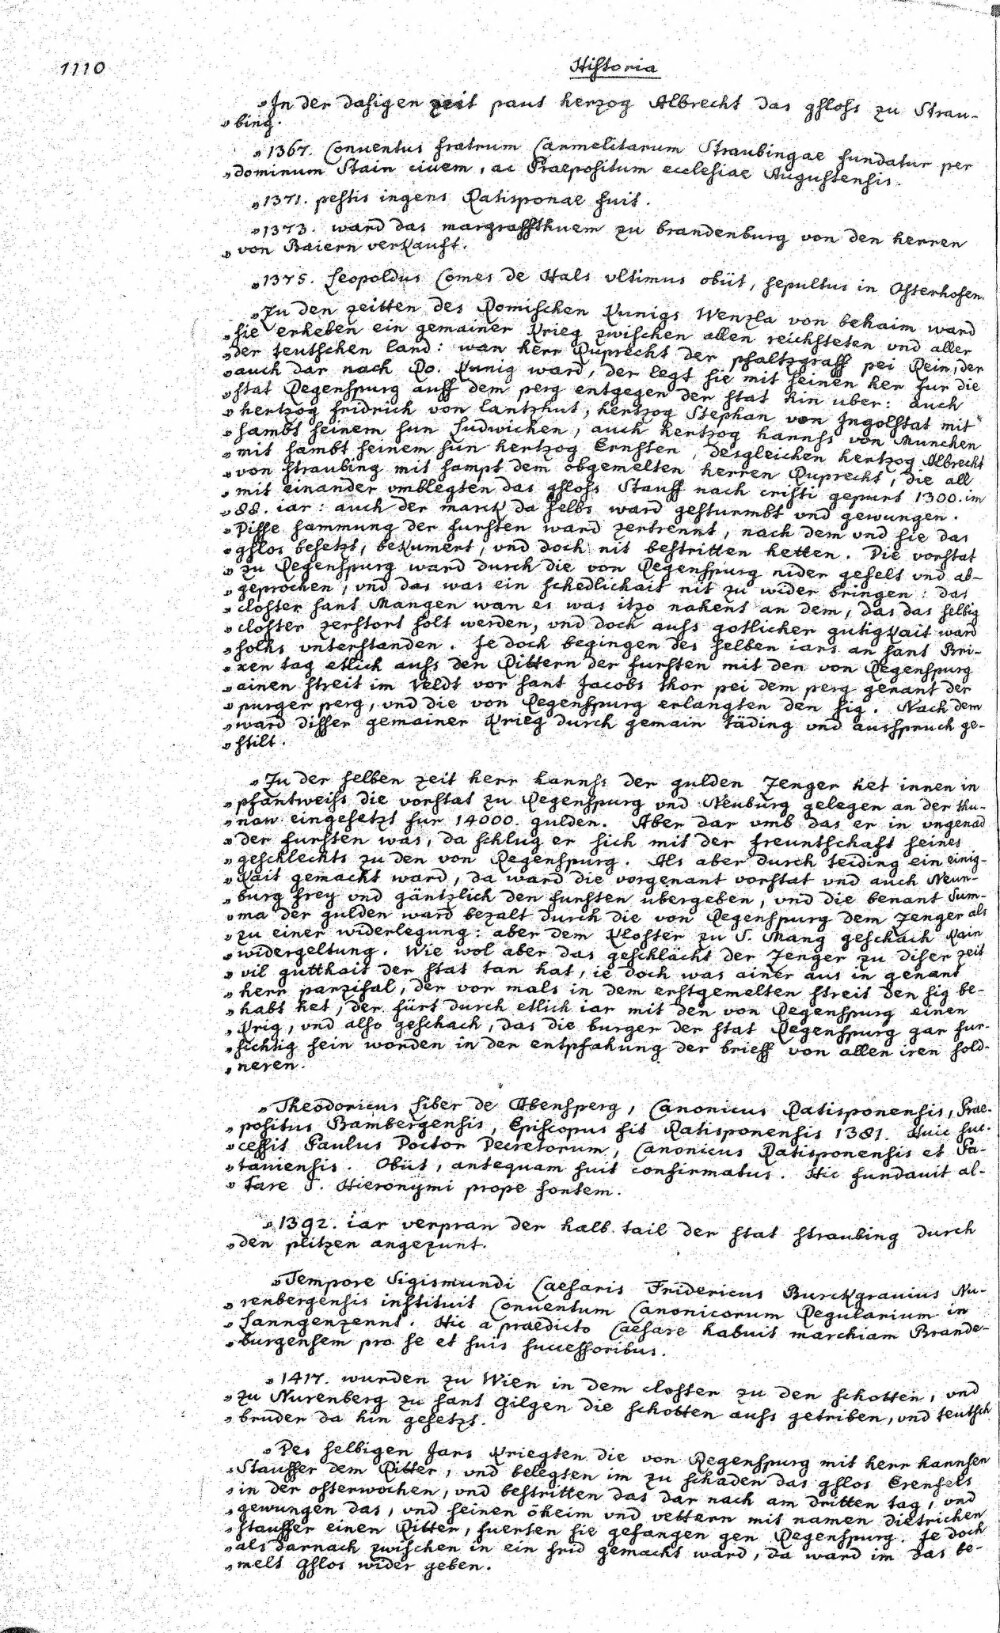 1110
Historia
»In der dasigen zeit paut herzog Albrecht das gsloss zu Strau-
»bing.
»1367. Conuentus fratrum Carmelitarum Straubingae fundatur per
»dominum Stain ciuem, ac Praepositum ecclesiae Augustensis.
»1371. pestis ingens Ratisponae fuit.
»1373. ward das margraffthuem zu brandenburg von den herren
»von Baiern verkauft.
»1375. Leopoldus Comes de Hals vltimus obiit, sepultus in Osterhofen.
»Zu den zeitten des Romischen Kunigs Wenzla von behaim ward
»sie erheben ein gemainer krieg zwischen allen reichsteten vnd aller
»der teutschen land: wan herr Ruprecht der pfaltzgraff pei Rein, der
»auch dar nach Ro. Kunig ward, der legt sie mit seinen her fur die
»stat Regenspurg auff dem perg entgegen der stat hin uber: auch
»hertzog fridrich von lantzhut, hertzog Stephan von Ingolstat mit
»sambt seinem sun Ludwichen, auch hertzog hannss von Munchen
»mit sambt seinem sun hertzog Ernsten, desgleichen hertzog Albrecht
»von straubing mit sampt dem obgemelten herren Ruprecht, die all
»mit einander vmblegten das gsloss Stauff nach cristi gepurt 1300. im
»88. iar: auch der marck da selbs ward gesturmbt vnd gewungen.
»Disse sammung der fursten ward zertrennt, nach dem vnd sie das
»gslos besetzt, bekumert, vnd doch nit bestritten hetten. Die vorstat
»zu Regenspurg ward durch die von Regenspurg nider gefelt vnd ab-
»geprochen, vnd das was ein schedlichait nit zu wider bringen: das
»closter sant Mangen wan es was itzo nahent an dem, das das selbig
»closter zerstort solt werden, vnd doch auss gotlicher gutigkait ward
»solks vnterstanden. Je doch begingen des selben iars an sant Bri-
»xen tag etlich auss den Rittern der fursten mit den von Regenspurg
»ainen streit im Veldt vor sant Jacobs thor pei dem perg genant der
»purger perg, vnd die von Regenspurg erlangten den sig. Nach dem
»ward disser gemainer krieg durch gemain täding vnd ausspruch ge-
»stilt.
»Zu der selben zeit herr hannss der gulden Zenger het innen in
»pfantweiss die vorstat zu Regenspurg vnd Neuburg gelegen an der thu-
»naw eingesetzt fur 14000. gulden. Aber dar vmb das er in vngenad
»der fursten was, da schlug er sich mit der freuntschaft seines
»geschlechts zu den von Regenspurg. Als aber durch teiding ein einig-
»kait gemacht ward, da ward die vorgenant vorstat vnd auch Neun-
»burg frey vnd gäntzlich den fursten übergeben, vnd die benant Sum-
»ma der gulden ward bezalt durch die von Regenspurg dem Zenger als
»zu einer widerlegung: aber dem Kloster zu S. Mang geschach kain
»widergeltung. Wie wol aber das geschlächt der Zenger zu diser zeit
»vil gutthait der stat tan hat, ie doch was ainer aus in genant
»herr parzifal, der vor mals in dem erstgemelten streit den sig be-
»habt het, der fürt durch etlich iar mit den von Regenspurg einen
»krig, vnd also geschach, das die burger der stat Regenspurg gar fur-
»sichtig sein worden in der entpfahung der brieff von allen iren sold-
»neren.
»Theodoricus siber de Abensperg, Canonicus Ratisponensis, Prae-
»positus Bambergensis, Episcopus fit Ratisponensis 1381. Huic suc-
»cessit Paulus Doctor Decretorum, Canonicus Ratisponensis et Pa-
»taniensis. Obiit, antequam fuit confirmatus. Hic fundauit al-
»tare S. Hieronymi prope fontem.
»1392. iar verpran der halb tail der stat straubing durch
»den plitzen angezunt.
»Tempore Sigismundi Caesaris Fridericus Burckgrauius Nu-
»renbergensis instituit Conuentum Canonicorum Regularium in
»Lanngenzennt. Hic a praedicto Caesare habuit marchiam Brande-
»burgensem pro se et suis successoribus.
»1417. wurden zu Wien in dem closter zu den schotten, vnd
»zu Nurenberg zu sant Gilgen die schotten auss getriben, vnd teutsch
»bruder da hin gesetzt.
»Des selbigen Jars kriegten die von Regenspurg mit herr hannsen
»Stauffer dem Ritter, vnd belegten im zu schaden das gslos Erenfels
»in der osterwochen, vnd bestritten das dar nach am dritten tag, vnd
»gewungen das, vnd seinen öheim vnd vettern mit namen dietrichen
»stauffer einen Ritter, fuerten sie gefangen gen Regenspurg. Je doch
»als darnach zwischen in ein frid gemacht ward, da ward im das be-
»melt gslos wider geben.